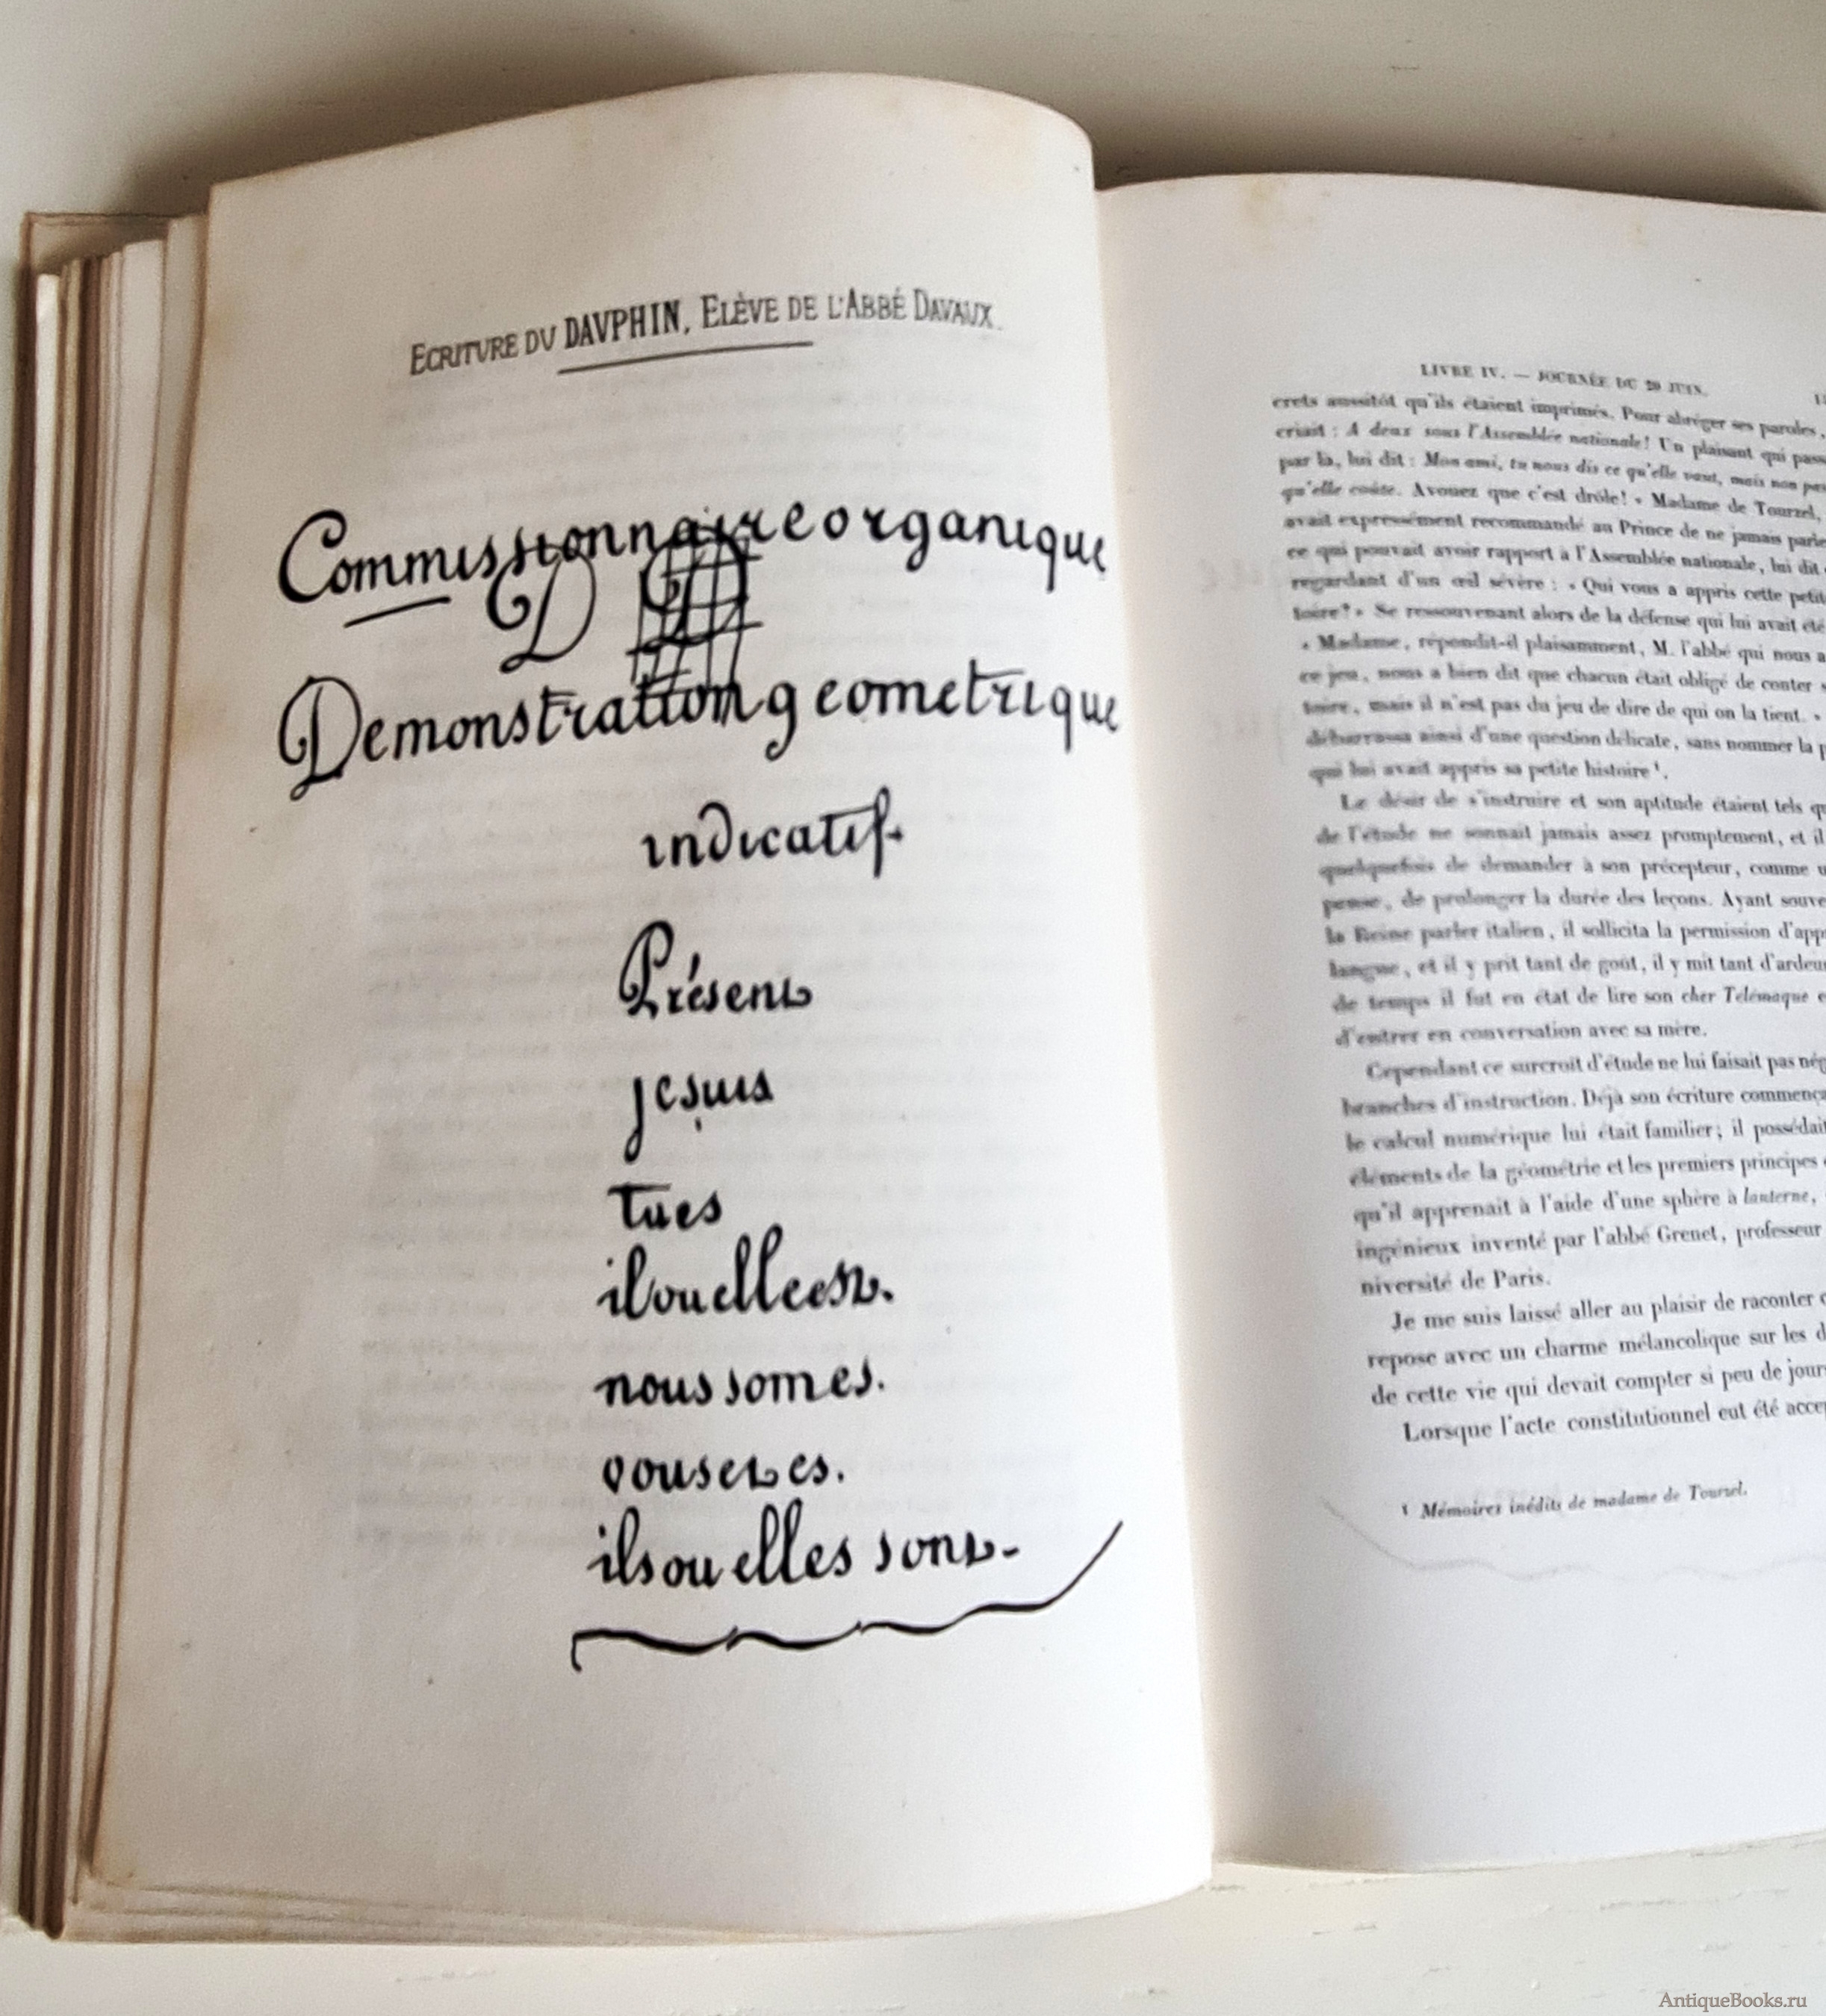 ECRITURE DU DAUPHIN, ELÈVE DE L'ABBÉ DAVAUX.
Commissionnaire organique
D D
Demonstration geometrique
indicatif
Présent
je suis
tu es
il ou elle est.
nous somes.
vous etes.
ils ou elles sont.
LIVRE IV. — JOURNÉE DU 20 JUIN.
crets aussitôt qu'ils étaient imprimés. Pour abréger ses paroles,
criait : A deux sous l'Assemblée nationale! Un plaisant qui pass
par là, lui dit : Mon ami, tu nous dis ce qu'elle vaut, mais non pas
qu'elle coûte. Avouez que c'est drôle! » Madame de Tourzel,
avait expressément recommandé au Prince de ne jamais parle
ce qui pouvait avoir rapport à l'Assemblée nationale, lui dit
regardant d'un œil sévère : « Qui vous a appris cette petit
toire? » Se ressouvenant alors de la défense qui lui avait été
« Madame, répondit-il plaisamment, M. l'abbé qui nous a
ce jeu, nous a bien dit que chacun était obligé de conter s
toire, mais il n'est pas du jeu de dire de qui on la tient. »
débarrassa ainsi d'une question délicate, sans nommer la p
qui lui avait appris sa petite histoire¹.
Le désir de s'instruire et son aptitude étaient tels qu
de l'étude ne sonnait jamais assez promptement, et il
quelquefois de demander à son précepteur, comme u
pense, de prolonger la durée des leçons. Ayant souve
la Reine parler italien, il sollicita la permission d'app
langue, et il y prit tant de goût, il y mit tant d'ardeu
de temps il fut en état de lire son cher Télémaque e
d'entrer en conversation avec sa mère.
Cependant ce surcroît d'étude ne lui faisait pas nég
branches d'instruction. Déjà son écriture commença
le calcul numérique lui était familier; il possédait
éléments de la géométrie et les premiers principes
qu'il apprenait à l'aide d'une sphère à lanterne,
ingénieux inventé par l'abbé Grenet, professeur
niversité de Paris.
Je me suis laissé aller au plaisir de raconter c
repose avec un charme mélancolique sur les d
de cette vie qui devait compter si peu de jour
Lorsque l'acte constitutionnel eut été accep
¹ Mémoires inédits de madame de Tourzel.
AntiqueBooks.ru